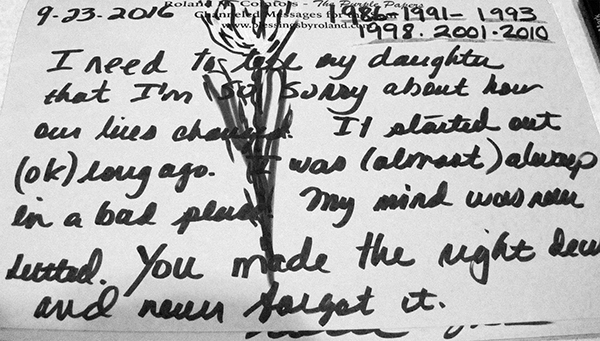 Roland M. Comtois - The Purple Papers
Channeled Messages for the
www.blessingsbyroland.com
9-23-2016
1986-1991-1993
1998. 2001-2010
I need to tell my daughter
that I'm so sorry about how
our lives changed. It started out
(ok) long ago. It was (almost) always
in a bad place. My mind was never
settled. You made the right
and never forget it.